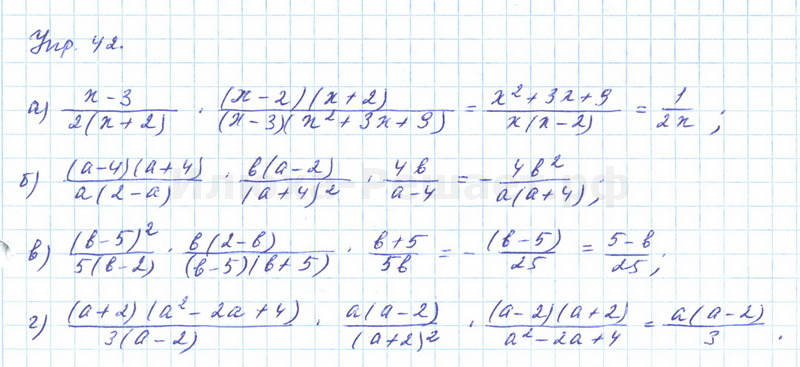 Упр. 42.
а) (x-3)/(2(x+2)) · ((x-2)(x+2))/((x-3)(x²+3x+9)) = (x²+3x+9)/(x(x-2)) = 1/(2x);
б) ((a-4)(a+4))/(a(2-a)) · (в(a-2))/((a+4)²) · (4в)/(a-4) = -(4в²)/(a(a+4));
в) ((в-5)²)/(5(в-2)) · (в(2-в))/((в-5)(в+5)) · (в+5)/(5в) = -((в-5))/25 = (5-в)/25;
г) ((a+2)(a²-2a+4))/(3(a-2)) · (a(a-2))/((a+2)²) · ((a-2)(a+2))/(a²-2a+4) = (a(a-2))/3.